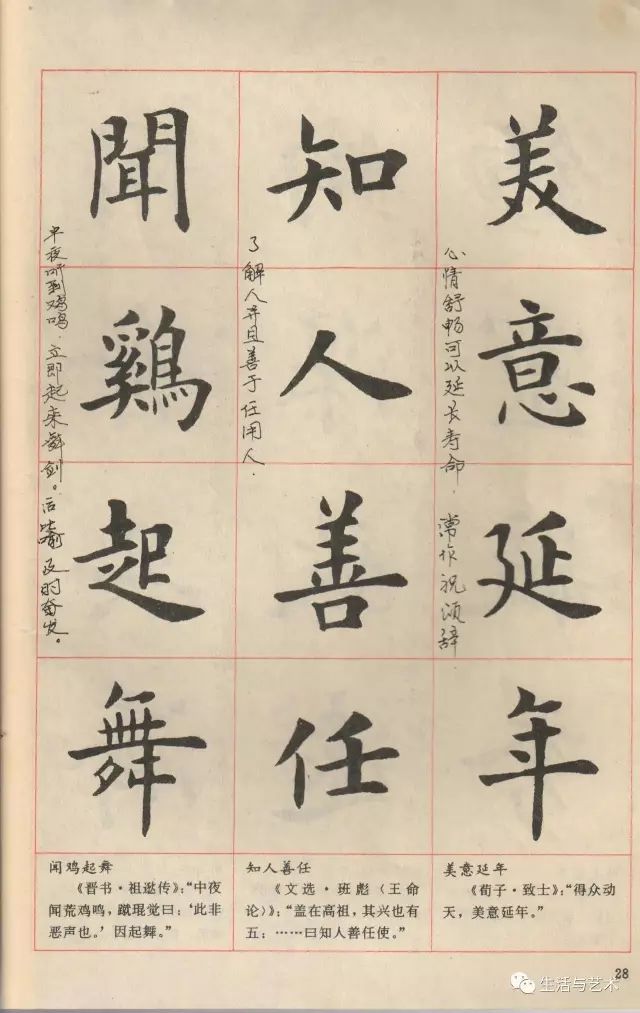 美意延年
心情舒畅可以延长寿命.常作祝颂辞.
知人善任
了解人并且善于任用人.
聞鷄起舞
半夜听到鸡鸣.立即起来舞剑。后比喻及时奋发。
美意延年
《荀子·致士》:“得众动
天,美意延年。”
知人善任
《文选·班彪(王命
论)》:“盖在高祖,其兴也有
五:……曰知人善任使。”
闻鸡起舞
《晋书·祖逖传》:“中夜
闻荒鸡鸣,蹴琨觉曰:‘此非
恶声也。’因起舞。”
28
生活与艺术